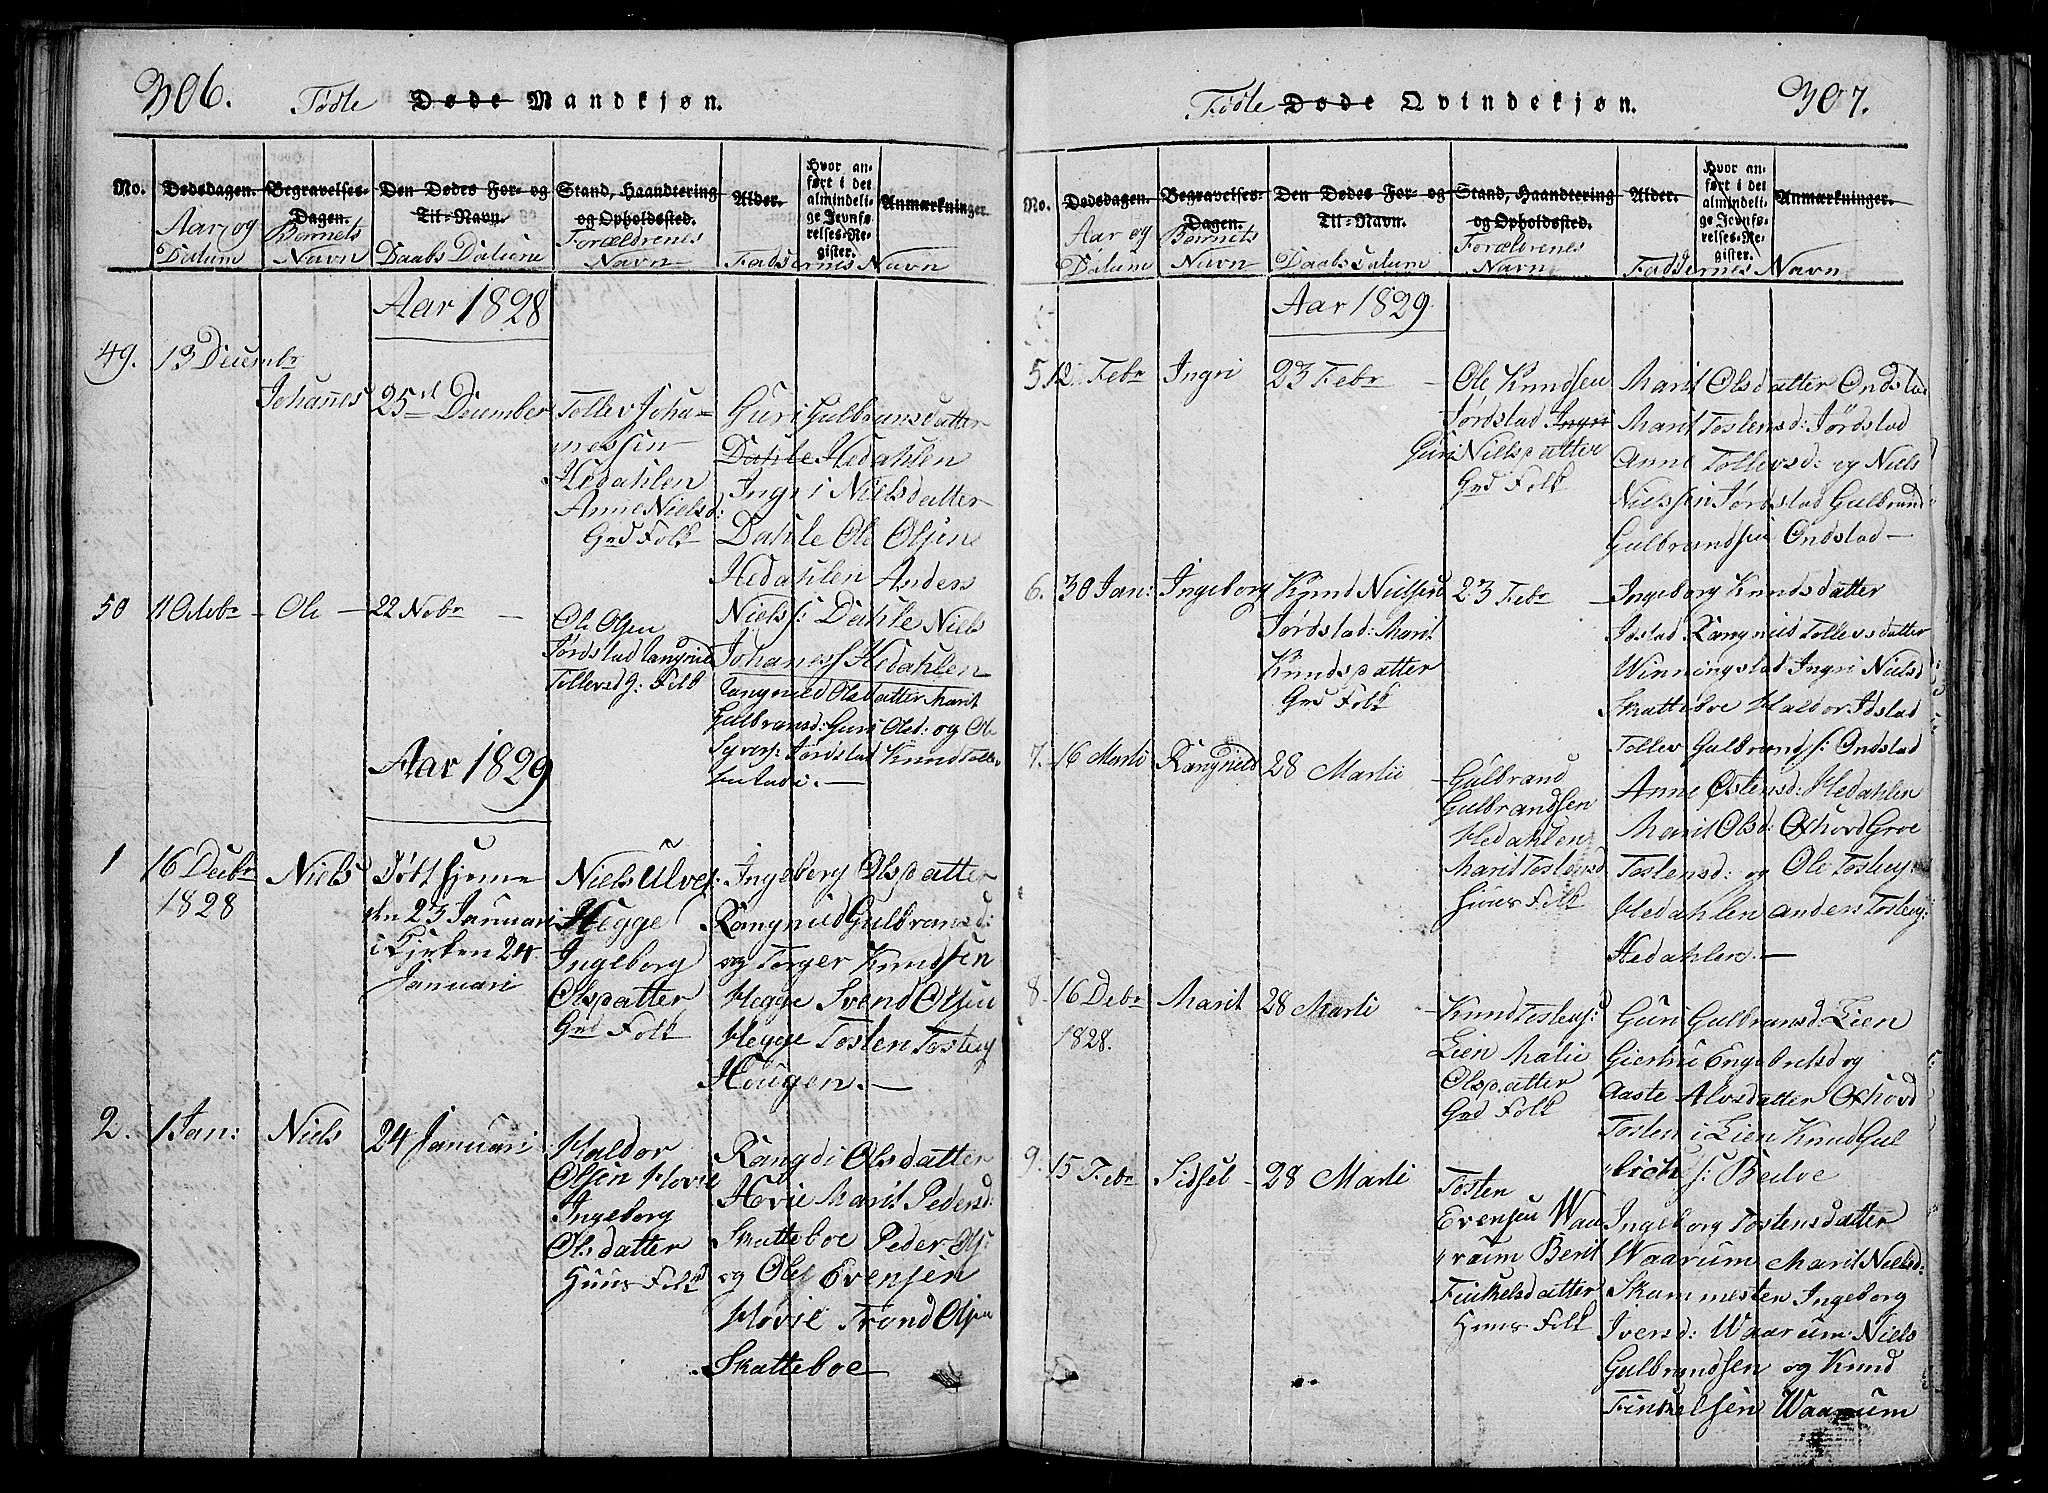 306.
Fødte Døde Mandkjøn.
No.
Dødsdagen.
Aar og
Datum
Begravelses-
Dagen.
Barnets
Navn
Den Dødes For- og
Til-Navn.
Daabs Datum
Stand, Haandtering
og Opholdssted.
Forældrenes
Navn
Alder.
Hvor an-
ført i det
almindeli-
ge Jevnfø-
relses-Re-
gister.
Anmærkninger.
Faddernes Navn
Aar 1828
49.
13 Decembr
Johanes
25d December
Tollev Joha-
nessen
Hedahlen
Anne Nielsd:
Grd Folk
Guri Gulbransdatter
Dahle Hedahlen
Ingri Nielsdatter
Dahle Ole Olsen
Hedahlen Anders
Niels s: Dahle Niels
Johaness Hedahlen
50
11 Octobr - Ole - 22 Nobr -
Ole Olsen
Jørdstad Rangnid
Tollevsd: Folk
Rangnid Olsdatter Marit
Gulbransd: Guri Olsd: og Ole
Syvers: Jordstad Knud Tollev
Aar 1829
1
16 Decbr
1828
Niels
Døbt hjemme
den 23 Januari
i Kjirken 24
Januari
Niels Ulves:
Hegge
Ingeborg
Olsdatter
Grd Folk
Ingeborg Olsdatter
Rangnid Gulbransd:
og Torger Knudsen
Hegge Svend Olsen
Hegge Tosten Tostens
Hougen. -
2.
1 Jan:
Niels
24 Januari
Haldor
Olsen Hovie
Ingeborg
Olsdatter
Huus Folk
Rangdi Olsdatter
Hovie Marit Pedersd:
Skatteboe Peder Ols:
og Ole Evensen
Hovie Trond Olsen
Skatteboe
Fødte Døde Qvindekjøn.
307.
No.
Dødsdagen.
Aar og
Datum
Begravelses-
Dagen.
Barnets
Navn
Den Dødes For- og
Til-Navn.
Daabs datum
Stand, Haandtering
og Opholdssted.
Forældrenes
Navn
Alder.
Hvor an-
ført i det
almindeli-
ge Jevnfø-
relses-Re-
gister.
Anmærkninger.
Faddernes Navn
Aar 1829
5
12 Febr
Ingri
23 Febr -
Ole Knudsen
Jørdstad Ingri
Guri Nielsdatter
Grd Folk
Marit Olsdatter Ondstad
Marit Tostensd: Jørdstad
Anne Tollevsd: og Niels
Nielssen Jørdstad Gulbrand
Gulbrandsen Ondstad -
6.
30 Jan:
Ingeborg
Knud Nielsen
Jørdstad: Marit
Knudsdatter
Grd Folk
23 Febr
- Ingeborg Knudsdatter
Jdstad Rangnid Tollevsdatter
Winningstad Ingri Nielsd
Skatteboe Haldor Jdstad
Tollev Gulbrands: Ondstad
7.
16 Martii
Rangnild
28 Martii
- Gulbrand
Gulbrandsen
Hedahlen
Marit Tostensd
Huus Folk
Anne Østensd: Hedahlen
Marit Olsd: Oxhovd Groe
Tostensd: og Ole Tostens:
Hedahlen Anders Tostens:
Hedahlen. -
8.
16 Debr
1828.
Marit
28 Marti
- Knud Tostens:
Lien Malie
Olsdatter
Grd Folk
Guri Gulbransd: Lien
Giertru Engebretsd og
Aaste Alvsdatter Oxhovd
Tosten i Lien Knud Gul
9.
15 Febr
Sidsel
- 28 Marti
Tosten
Evensen Waa
raum Berit
Finkelsdatter
Huus Folk
Ingeborg Tostensdatter
Waarum Marit Nielsd:
Skammesten Ingeborg
Iversd: Waarum: Niels
Gulbrandsen og Knud
Finkelsen Waarum